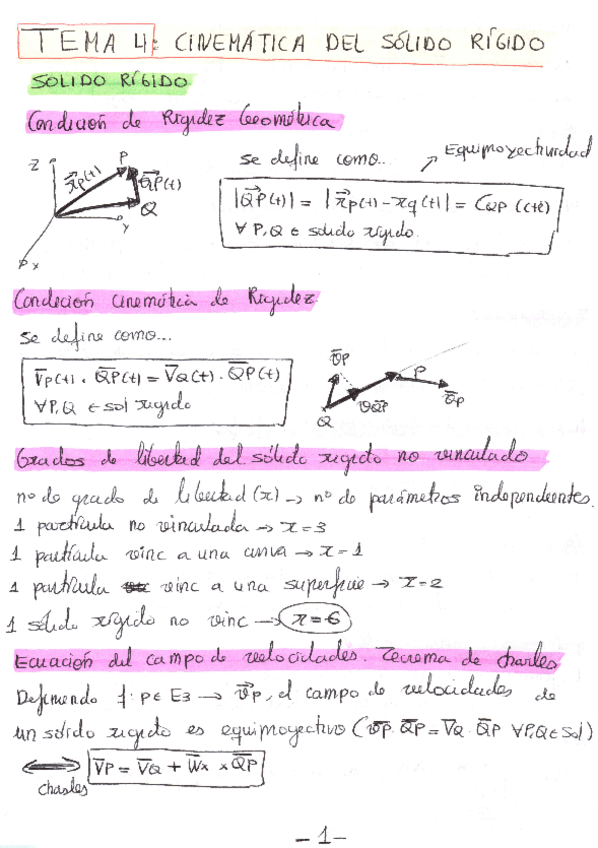 TEMA 4: CINEMÁTICA DEL SÓLIDO RÍGIDO
SOLIDO RÍGIDO
Condición de Rigidez Geométrica
Z P x⃗p(t) Q⃗P(t) Q Y X
Se define como... → Equiproyectividad
|Q⃗P(t)| = |x⃗p(t) - xq(t)| = CQP (cte)
∀ P, Q ∈ solido rígido.
Condición cinemática de Rigidez.
Se define como...
V̄p(t) · Q̄P(t) = V̄Q(t) · Q̄P(t)
∀P,Q ∈ sol rigido
v̄p P v̄p Q vQ̄P
Grados de libertad del sólido rigido no vinculado
nº de grado de libertad (x) → nº de parámetros independientes.
1 partícula no vinculada → x=3
1 partícula vinc a una curva → x=1
1 partícula vinc a una superficie → x=2
1 sólido rígido no vinc → x=6
Ecuación del campo de velocidades. Teorema de Charles
Definiendo f: P∈ E3 → v⃗p, el campo de velocidades de
un sólido rigido es equiproyectivo (v̄p · Q̄P = V̄Q · Q̄P ∀P,Q∈Sol)
⟷ V̄P = V̄Q + W̄x x Q̄P
Chasles
-1-